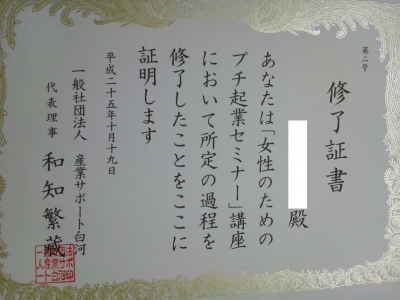 第二号
修了証書
殿
あなたは「女性のための
プチ起業セミナー」講座
において所定の過程を
修了したことをここに
証明します
平成二十五年十月十九日
一般社団法人 産業サポート白河
代表理事 和知繁蔵